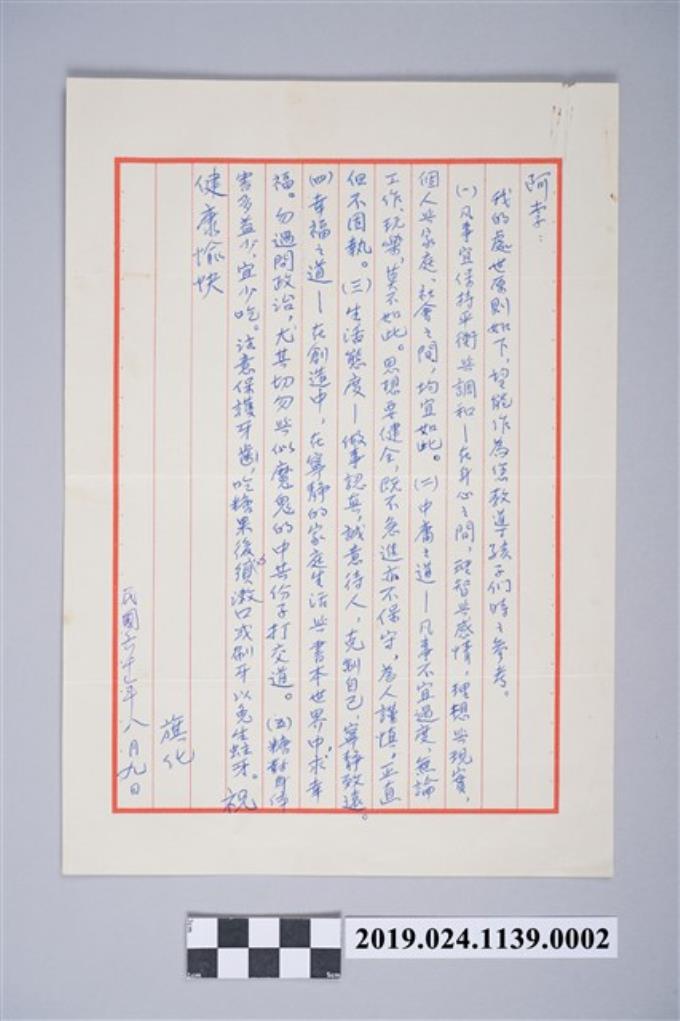 阿李：
我的處世原則如下，望能作為您教導孩子们時之參考。
(一)凡事宜保持平衡與調和—在身心之間，理智與感情，理想與現實，
個人與家庭、社會之間，均宜如此。(二)中庸之道—凡事不宜過度，無論
工作、玩樂，莫不如此。思想要健全，既不急進亦不保守，為人謹慎，正直
但不固執。(三)生活態度—做事認真，誠意待人，克制自己，寧靜致遠。
(四)幸福之道—在創造中，在寧靜的家庭生活與書本世界中，求幸
福。勿過問政治，尤其切勿與似魔鬼的中共份子打交道。(五)糖對身体
害多益少，宜少吃。注意保護牙齒，吃糖果後須漱口或刷牙以免生蛀牙。祝
健康愉快
旗化
民國六十七年八月九日
2019.024.1139.0002